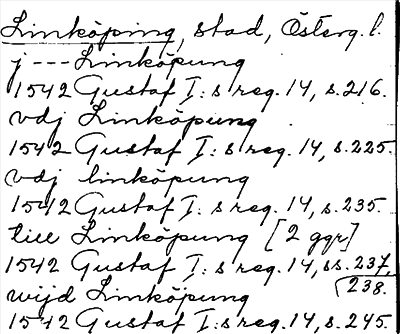 Linköping, stad, Österg. l.
j --- Linköpung
1542 Gustaf I: s reg. 14, s. 216.
vdj Linköpung
1542 Gustaf I: s reg. 14, s. 225.
vdj linköpung
1542 Gustaf I: s reg. 14, s. 235.
till Linköpung [2 ggr]
1542 Gustaf I: s reg. 14, ss. 237,
238.
wijd Linköpung
1542 Gustaf I: s reg. 14, s. 245.